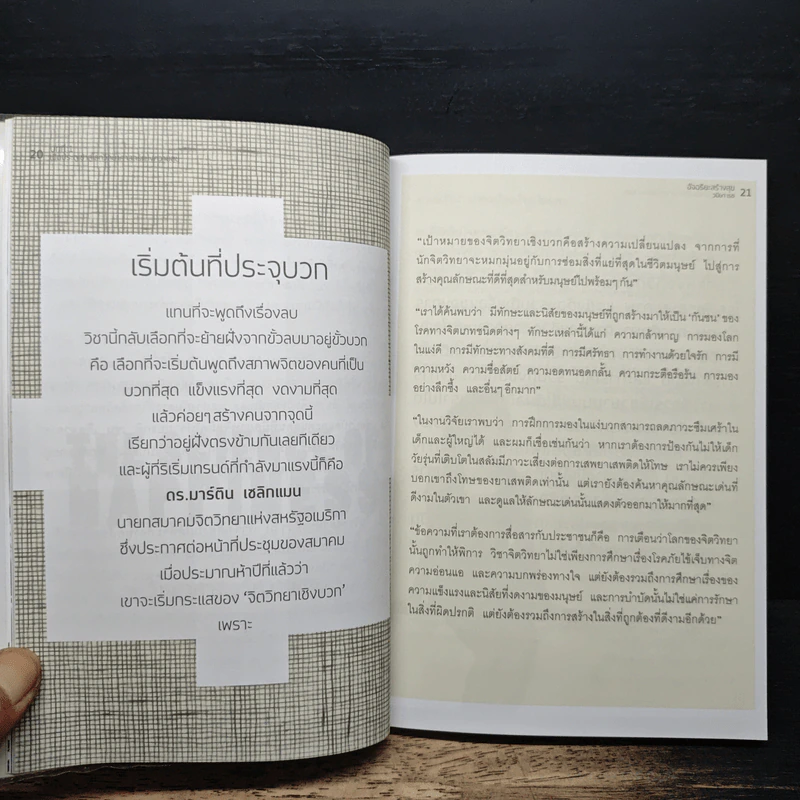 20
เริ่มต้นที่ประจุบวก
แทนที่จะพูดถึงเรื่องลบ
วิชานี้กลับเลือกที่จะย้ายฝั่งจากขั้วลบมาอยู่ขั้วบวก
คือ เลือกที่จะเริ่มต้นพูดถึงสภาพจิตของคนที่เป็น
บวกที่สุด แข็งแรงที่สุด งดงามที่สุด
แล้วค่อยๆ สร้างคนจากจุดนี้
เรียกว่าอยู่ฝั่งตรงข้ามกันเลยทีเดียว
และผู้ที่ริเริ่มเทรนด์ที่กำลังมาแรงนี้ก็คือ
ดร.มาร์ติน เซลิกแมน
นายกสมาคมจิตวิทยาแห่งสหรัฐอเมริกา
ซึ่งประกาศต่อหน้าที่ประชุมของสมาคม
เมื่อประมาณห้าปีที่แล้วว่า
เขาจะเริ่มกระแสของ ‘จิตวิทยาเชิงบวก’
เพราะ
อัจฉริยะสร้างสุข
21
“เป้าหมายของจิตวิทยาเชิงบวกคือสร้างความเปลี่ยนแปลง จากการที่
นักจิตวิทยาจะหมกมุ่นอยู่กับการซ่อมสิ่งที่แย่ที่สุดในชีวิตมนุษย์ ไปสู่การ
สร้างคุณลักษณะที่ดีที่สุดสำหรับมนุษย์ไปพร้อมๆ กัน”
“เราได้ค้นพบว่า มีทักษะและนิสัยของมนุษย์ที่ถูกสร้างมาให้เป็น ‘กันชน’ ของ
โรคทางจิตเภทชนิดต่างๆ ทักษะเหล่านี้ได้แก่ ความกล้าหาญ การมองโลก
ในแง่ดี การมีทักษะทางสังคมที่ดี การมีศรัทธา การทำงานด้วยใจรัก การมี
ความหวัง ความซื่อสัตย์ ความอดทนอดกลั้น ความกระตือรือร้น การมอง
อย่างลึกซึ้ง และอื่นๆ อีกมาก”
“ในงานวิจัยเราพบว่า การฝึกการมองในแง่บวกสามารถลดภาวะซึมเศร้าใน
เด็กและผู้ใหญ่ได้ และผมก็เชื่อเช่นกันว่า หากเราต้องการป้องกันไม่ให้เด็ก
วัยรุ่นที่เติบโตในสลัมมีภาวะเสี่ยงต่อการเสพยาเสพติดให้โทษ เราไม่ควรเพียง
บอกเขาถึงโทษของยาเสพติดเท่านั้น แต่เรายังต้องค้นหาคุณลักษณะเด่นที่
ดีงามในตัวเขา และดูแลให้ลักษณะเด่นนั้นแสดงตัวออกมาให้มากที่สุด”
“ข้อความที่เราต้องการสื่อสารกับประชาชนก็คือ การเตือนว่าโลกของจิตวิทยา
นั้นถูกทำให้พิการ วิชาจิตวิทยาไม่ใช่เพียงการศึกษาเรื่องโรคภัยไข้เจ็บทางจิต
ความอ่อนแอ และความบกพร่องทางใจ แต่ยังต้องรวมถึงการศึกษาเรื่องของ
ความแข็งแรงและนิสัยที่งดงามของมนุษย์ และการบำบัดนั้นไม่ใช่แค่การรักษา
ในสิ่งที่ผิดปรกติ แต่ยังต้องรวมถึงการสร้างในสิ่งที่ถูกต้องที่ดีงามอีกด้วย”